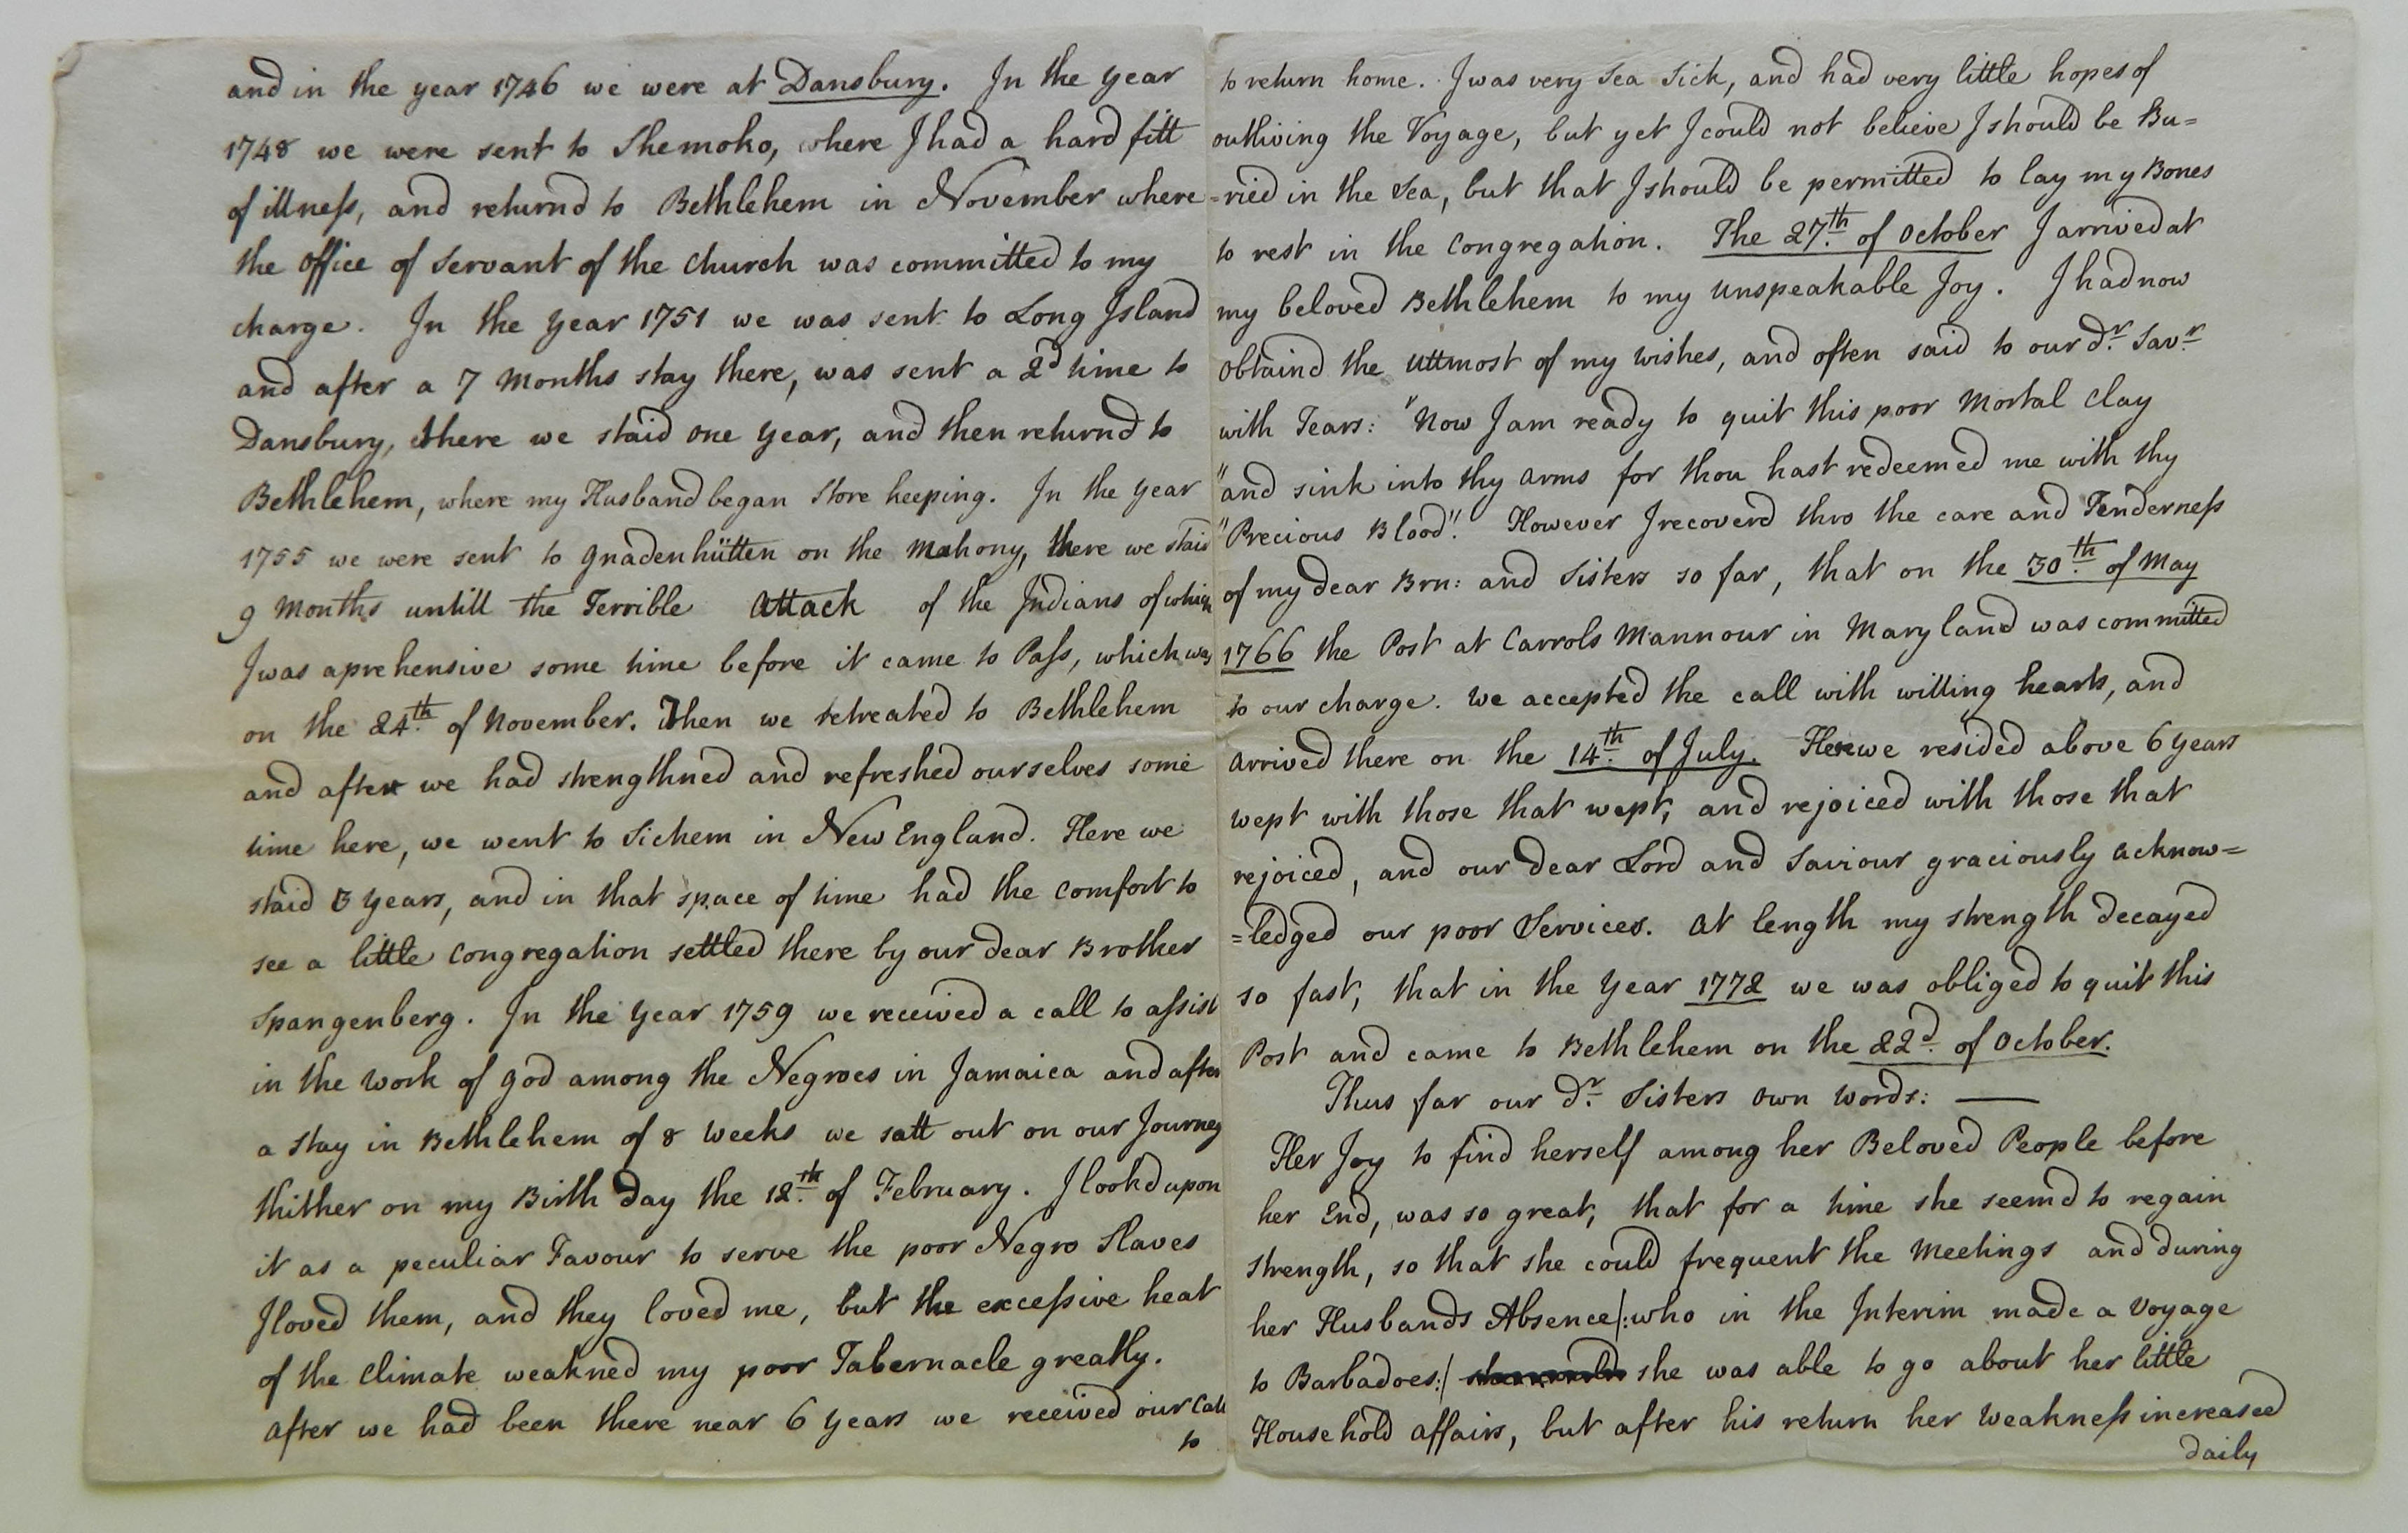 and in the year 1746 we were at Dansbury. In the year
1748 we were sent to Shemoko, where I had a hard fitt
of illness, and returnd to Bethlehem in November where
the office of Servant of the Church was committed to my
charge. In the year 1751 we was sent to Long Island
and after a 7 Months stay there, was sent a 2d time to
Dansbury, there we staid one year, and then returnd to
Bethlehem, where my Husband began Store keeping. In the year
1755 we were sent to Gnadenhütten on the Mahony, there we staid
9 Months untill the Terrible Attack of the Indians of which
I was aprehensive some time before it came to Pass, which was
on the 24th of November. Then we retreated to Bethlehem
and after we had strengthned and refreshed ourselves some
time here, we went to Sichem in New England. Here we
staid 3 years, and in that space of time had the comfort to
see a little Congregation settled there by our dear Brother
Spangenberg. In the year 1759 we received a call to assist
in the Work of God among the Negroes in Jamaica and after
a stay in Bethlehem of 8 Weeks we satt out on our Journey
thither on my Birth Day the 12th of February. I lookd upon
it as a peculiar Favour to serve the poor Negro Slaves
I loved them, and they loved me, but the excessive heat
of the Climate weakned my poor Tabernacle greatly.
After we had been there near 6 years we received our Call
to
to return home. I was very Sea Sick, and had very little hopes of
outliving the Voyage, but yet I could not believe I should be Bu=
=ried in the Sea, but that I should be permitted to lay my Bones
to rest in the Congregation. The 27th of October I arrived at
my beloved Bethlehem to my unspeakable Joy. I had now
obtaind the uttmost of my wishes, and often said to our dr Savr
with Tears: "Now I am ready to quit this poor Mortal Clay
"and sink into thy arms for thou hast redeemed me with thy
"Precious Blood". However I recoverd thro the care and Tenderness
of my dear Brn: and Sisters so far, that on the 30th of May
1766 the Post at Carrols Mannour in Maryland was committed
to our charge. We accepted the call with willing hearts, and
arrived there on the 14th of July. Here we resided above 6 years
wept with those that wept, and rejoiced with those that
rejoiced, and our dear Lord and Saviour graciously acknow=
=ledged our poor Services. At length my strength decayed
so fast, that in the year 1772 we was obliged to quit this
Post and came to Bethlehem on the 22d of October.
Thus far our dr Sisters own words: —
Her Joy to find herself among her Beloved People before
her End, was so great, that for a time she seemd to regain
strength, so that she could frequent the Meetings and during
her Husbands Absence/:who in the Interim made a Voyage
to Barbadoes:/ she was able to go about her little
Household affairs, but after his return her weakness increased
daily